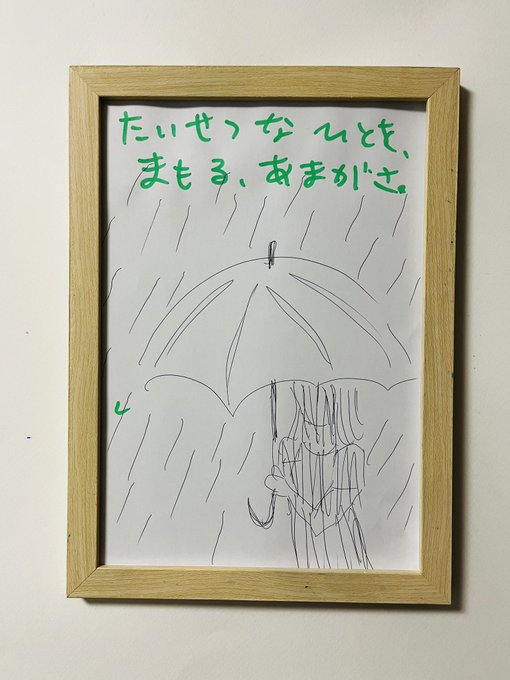 たいせつなひとを、
まもる、あまがさ。